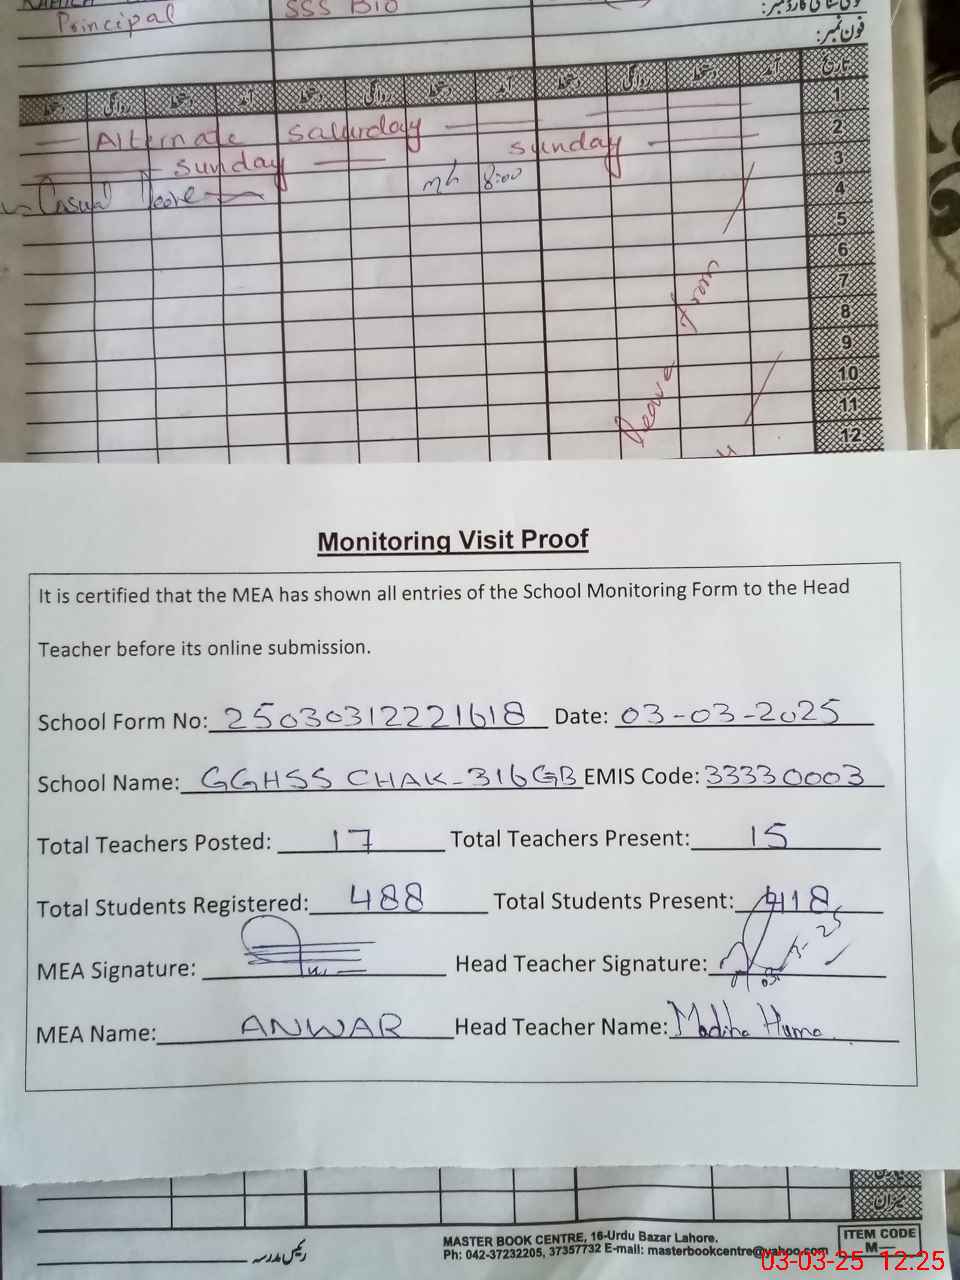 Principal SSS Bio
فون نمبر:
دستخط روانگی دستخط آمد دستخط روانگی دستخط آمد دستخط روانگی دستخط آمد تاریخ
1
Alternate Saturday 2
Sunday Sunday 3
Casual Leave mh 8:00 4
5
6
7
8
9
10
11
12
Leave from
Monitoring Visit Proof
It is certified that the MEA has shown all entries of the School Monitoring Form to the Head
Teacher before its online submission.
School Form No: 25030312221618 Date: 03-03-2025
School Name: GGHSS CHAK-316GB EMIS Code: 33330003
Total Teachers Posted: 17 Total Teachers Present: 15
Total Students Registered: 488 Total Students Present: 418
MEA Signature: Head Teacher Signature:
MEA Name: ANWAR Head Teacher Name: Madiha Huma
میزان
رئیس مدرسہ
MASTER BOOK CENTRE, 16-Urdu Bazar Lahore.
Ph: 042-37232205, 37357732 E-mail: masterbookcentre@yahoo.com
ITEM CODE
M—
03-03-25 12.25